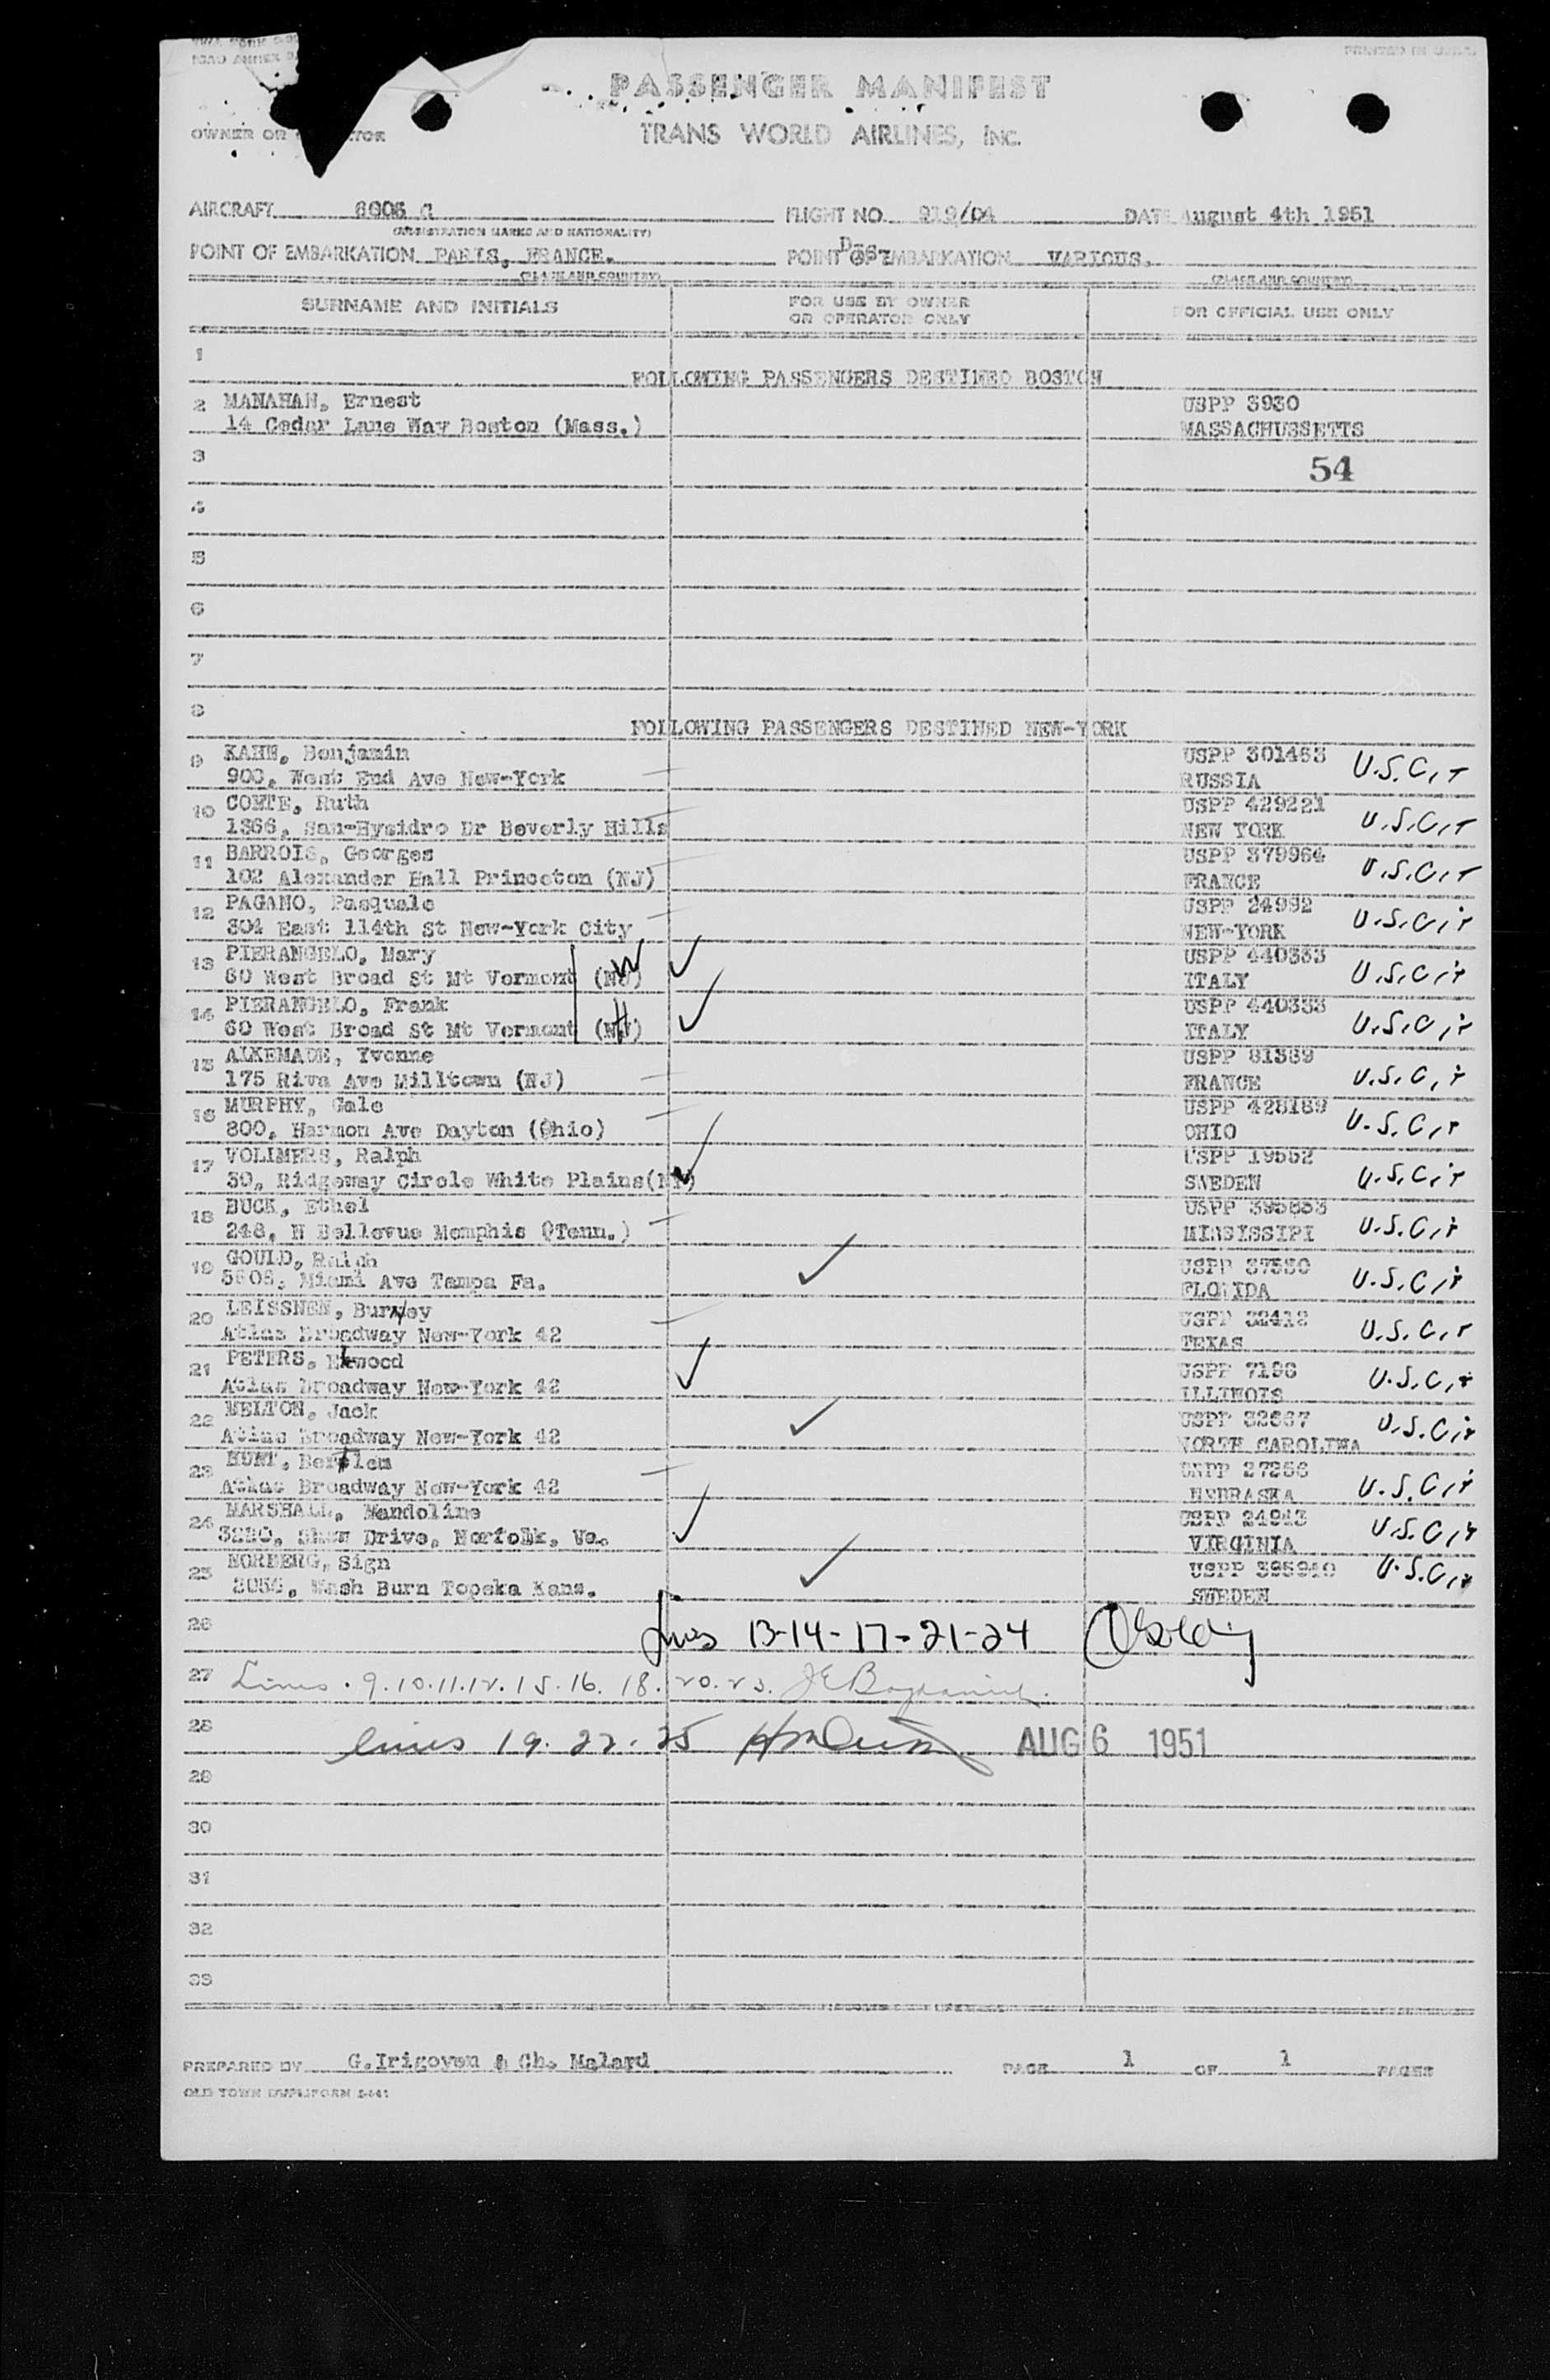 ICAO ANNEX 9
PRINTED IN U.S.A.
PASSENGER MANIFEST
OWNER OR
TRANS WORLD AIRLINES, INC.
AIRCRAFT 6006 C FLIGHT NO. 919/04 DATE August 4th 1951
(REGISTRATION MARKS AND NATIONALITY)
POINT OF EMBARKATION PARIS, FRANCE. POINT OF EMBARKATION VARIOUS.
(PLACE AND COUNTRY) (PLACE AND COUNTRY)
SURNAME AND INITIALS FOR USE BY OWNER OR OPERATOR ONLY FOR OFFICIAL USE ONLY
1
FOLLOWING PASSENGERS DESTINED BOSTON
2 MANAHAN, Ernest USPP 3930
14 Cedar Lane Way Boston (Mass.) MASSACHUSSETTS
3 54
4
5
6
7
8
FOLLOWING PASSENGERS DESTINED NEW-YORK
9 KAHN, Benjamin USPP 301453 U.S.Cit
900, West End Ave New-York RUSSIA
10 COMTE, Ruth USPP 429221 U.S.Cit
1366, San-Hysidro Dr Beverly Hills NEW YORK
11 BARROIS, Georges USPP 379964 U.S.Cit
102 Alexander Hall Princeton (NJ) FRANCE
12 PAGANO, Pasquale USPP 24992 U.S.Cit
304 East 114th St New-York City NEW-YORK
13 PIERANGELO, Mary USPP 440333 U.S.Cit
60 West Broad St Mt Vermont ITALY
14 PIERANGELO, Frank USPP 440333 U.S.Cit
60 West Broad St Mt Vermont ITALY
15 ALKEMADE, Yvonne USPP 81389 U.S.Cit
175 Riva Ave Milltown (NJ) FRANCE
16 MURPHY, Gale USPP 428189 U.S.Cit
800, Harmon Ave Dayton (Ohio) OHIO
17 VOLIMERS, Ralph USPP 19552 U.S.Cit
30, Ridgeway Circle White Plains(NY) SWEDEN
18 BUCK, Ethel USPP 395853 U.S.Cit
248, N Bellevue Memphis (Tenn.) MISSISSIPI
19 GOULD, Ralph USPP 37530 U.S.Cit
5808, Miami Ave Tampa Fa. FLORIDA
20 LEISSNEN, Burney USPP 32412 U.S.Cit
Atlas Broadway New-York 42 TEXAS
21 PETERS, Elwood USPP 7196 U.S.Cit
Atlas Broadway New-York 42 ILLINOIS
22 MELTON, Jack USPP 32667 U.S.Cit
Atlas Broadway New-York 42 NORTH CAROLINA
23 HUNT, USPP 27256 U.S.Cit
Atlas Broadway New-York 42 NEBRASKA
24 MARSHALL, Mandoline USPP 24943 U.S.Cit
3220, Shaw Drive, Norfolk, Va. VIRGINIA
25 NORBERG, Sign USPP 395940 U.S.Cit
2056, Wash Burn Topeka Kans. SWEDEN
26 Lines 13-14-17-21-24
27 Lines . 9.10.11.12.15.16.18.20.23.
28 lines 19. 22. 25 AUG 6 1951
29
30
31
32
33
PREPARED BY G.Irigoyen & Ch. Malard PAGE 1 OF 1 PAGES
OLD TOWN DUPLIFORM